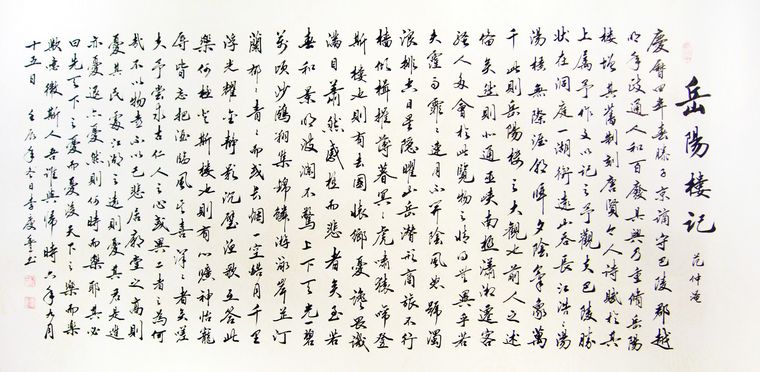 岳陽樓記
范仲淹
慶曆四年春滕子京謫守巴陵郡越
明年政通人和百廢具興乃重修岳陽
樓增其舊制刻唐賢今人詩賦於其
上屬予作文以記之予觀夫巴陵勝
狀在洞庭一湖銜遠山吞長江浩浩湯
湯橫無際涯朝暉夕陰氣象萬
千此則岳陽樓之大觀也前人之述
備矣然則北通巫峽南極瀟湘遷客
騷人多會於此覽物之情得無異乎若
夫霪雨霏霏連月不開陰風怒號濁
浪排空日星隱曜山岳潛形商旅不行
檣傾楫摧薄暮冥冥虎嘯猿啼登
斯樓也則有去國懷鄉憂讒畏譏
滿目蕭然感極而悲者矣至若
春和景明波瀾不驚上下天光一碧
萬頃沙鷗翔集錦鱗游泳岸芷汀
蘭郁郁青青而或長煙一空皓月千里
浮光耀金靜影沉璧漁歌互答此
樂何極登斯樓也則有心曠神怡寵
辱皆忘把酒臨風其喜洋洋者矣嗟
夫予嘗求古仁人之心或異二者之為何
哉不以物喜不以己悲居廟堂之高則
憂其民處江湖之遠則憂其君是進
亦憂退亦憂然則何時而樂耶其必
曰先天下之憂而憂後天下之樂而樂
歟噫微斯人吾誰與歸時六年九月
十五日 壬辰年冬日李慶